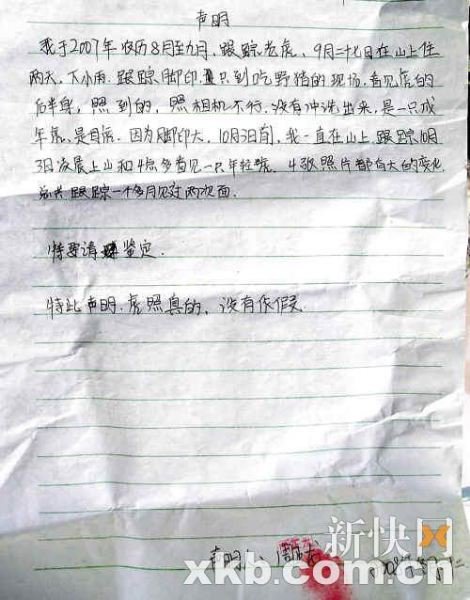 声明
我于2007年农历8月至九月,跟踪老虎,9月二十七日在山上住
两天,下小雨,跟踪脚印,只到吃野猪的现场,看见虎的
后半身,照到的,照相机不行,没有冲洗出来,是一只成
年虎,是母虎。因为脚印大,10月3日前,我一直在山上跟踪10月
3日凌晨上山和4点多看见一只年轻虎。4张照片都有大的变化
总共跟踪一个多月见过两次面.
特要请求鉴定.
特此声明.虎照真的,没有作假.
声明人:周
新快网
xkb.com.cn